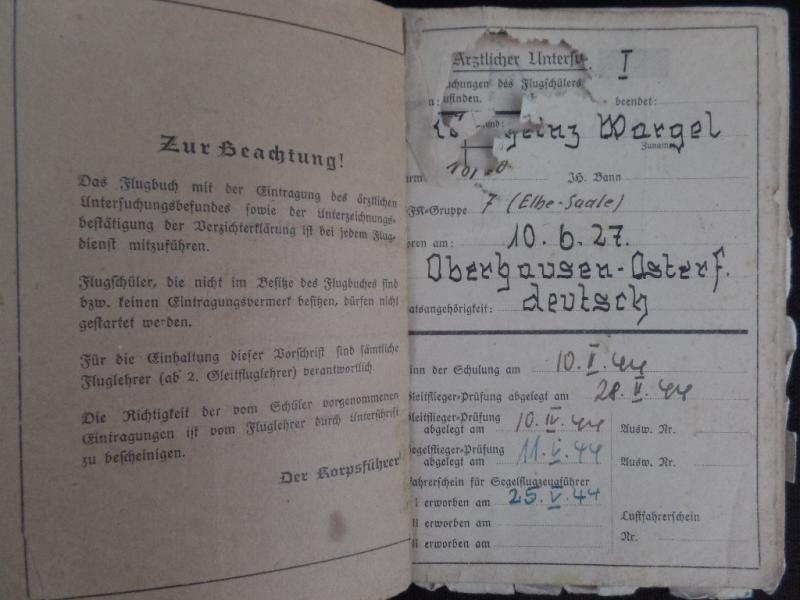 Zur Beachtung!
Das Flugbuch mit der Eintragung des ärztlichen
Untersuchungsbefundes sowie der Unterzeichnungs-
bestätigung der Verzichterklärung ist bei jedem Flug-
dienst mitzuführen.
Flugschüler, die nicht im Besitze des Flugbuches sind
bzw. keinen Eintragungsvermerk besitzen, dürfen nicht
gestartet werden.
Für die Einhaltung dieser Vorschrift sind sämtliche
Fluglehrer (ab 2. Gleitfluglehrer) verantwortlich.
Die Richtigkeit der vom Schüler vorgenommenen
Eintragungen ist vom Fluglehrer durch Unterschrift
zu bescheinigen.
Der Korpsführer
Ärztlicher Untersu. I
chungen des Flugschülers
ufinden. beendet:
einz Wargel
Zuname
Jg. Bann
FK-Gruppe 7 (Elbe-Saale)
oren am: 10.6.27.
Oberhausen-Osterf.
atsangehörigkeit: deutsch
inn der Schulung am 10.II.44
Gleitflieger-Prüfung abgelegt am 28.II.44
Gleitflieger-Prüfung
abgelegt am 10.IV.44 Ausw. Nr.
Segelflieger-Prüfung
abgelegt am 11.V.44 Ausw. Nr.
fahrerschein für Segelflugzeugführer
I erworben am 25.V.44
II erworben am Luftfahrerschein
II erworben am Nr.